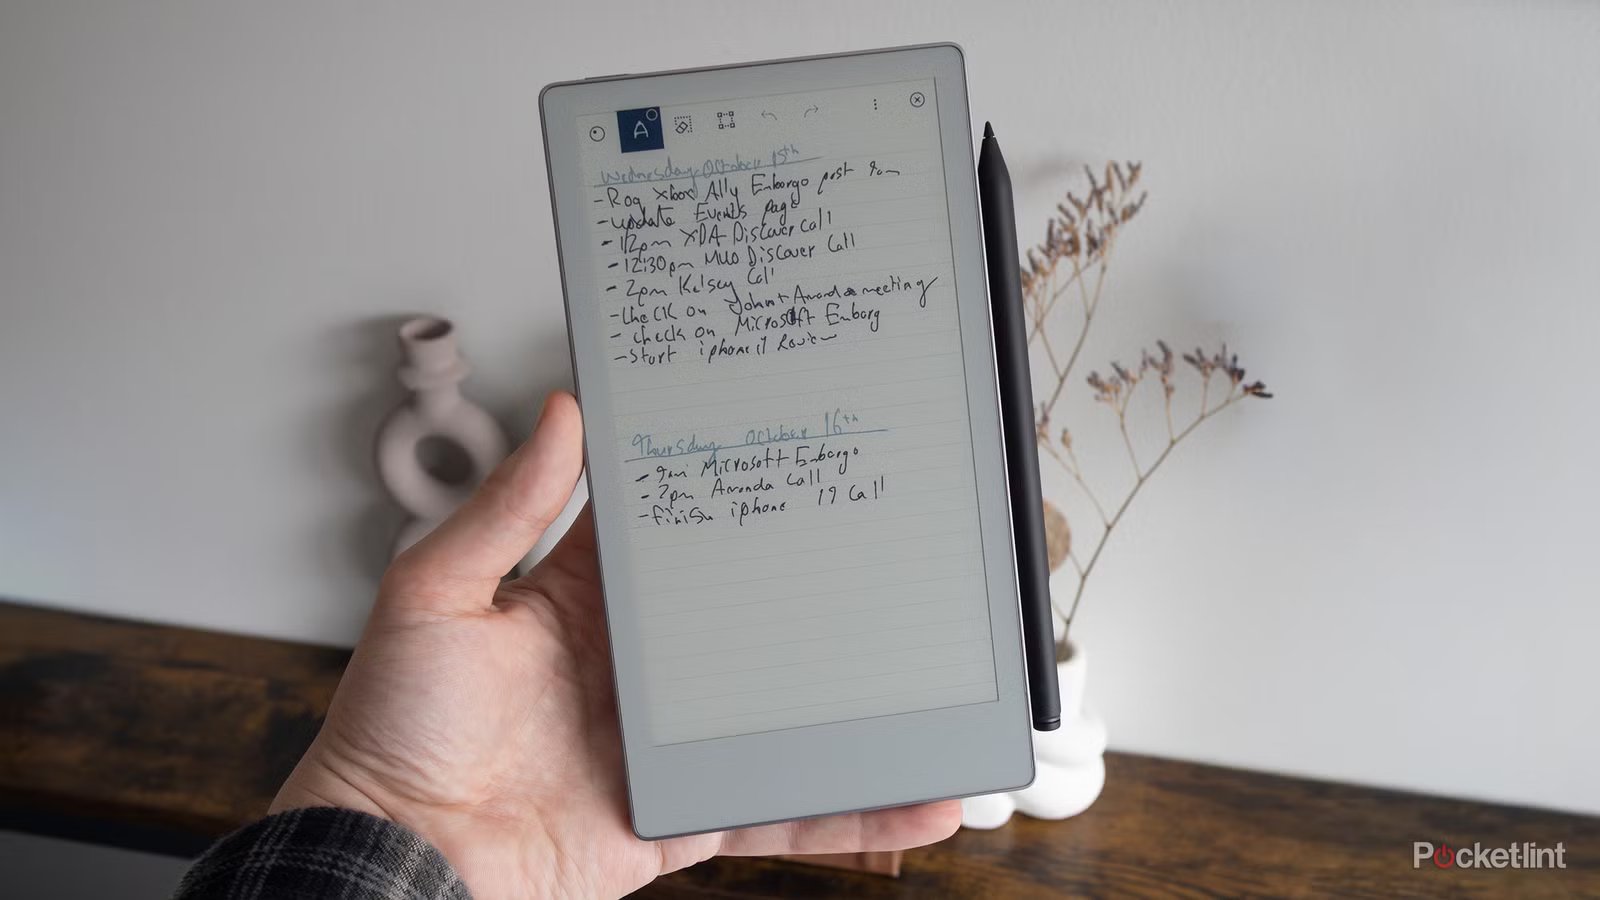 A
Wednesday October 15th
- Rog Xbox Ally Embargo post 9am
- update Events page
- 12pm XDA Discover call
- 12:30pm MUO Discover Call
- 2pm Kelsey Call
- check on John + Amanda meeting
- check on Microsoft Embarg
- Start iphone 17 Review
Thursday October 16th
- 9am Microsoft Embargo
- 2pm Amanda Call
- finish iphone 17 Call
Pocketlint